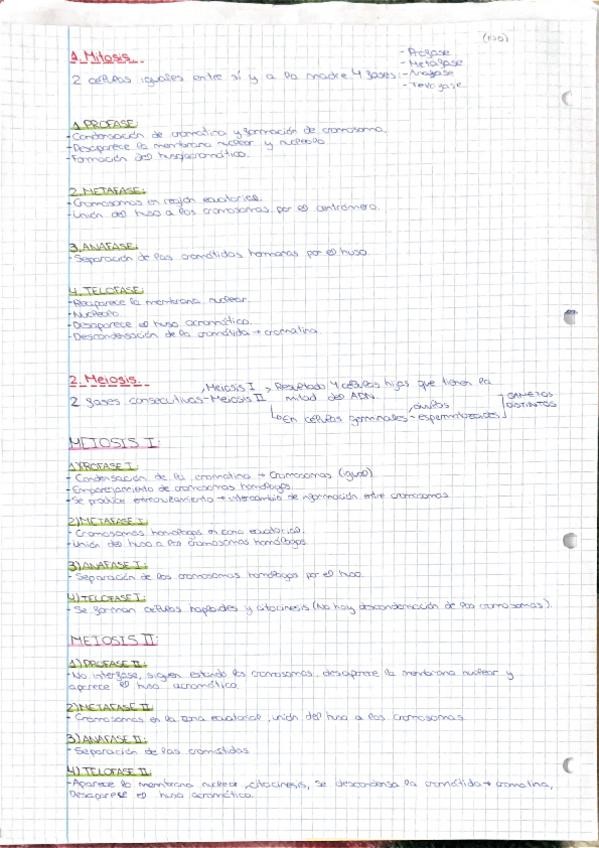 1. Mitosis
- Profase
- Metafase
2 células iguales entre sí y a la madre 4 fases: - Anafase
- Telofase
1. PROFASE:
- Condensación de cromatina y formación de cromosoma.
- Desaparece la membrana nuclear y nucleolo
- Formación del huso acromático.
2. METAFASE:
- Cromosomas en región ecuatorial.
- Unión del huso a los cromosomas por el centrómero.
3. ANAFASE:
- Separación de las cromátidas hermanas por el huso.
4. TELOFASE:
- Reaparece la membrana nuclear
- Nucleolo
- Desaparece el huso acromático.
- Descondensación de la cromátida → cromatina
2. Meiosis
Meiosis I → Resultado 4 células hijas que tienen la
2 fases consecutivas - Meiosis II mitad del ADN.
En células germinales - óvulos espermatozoides GAMETOS DISTINTOS
MEIOSIS I:
1) PROFASE I:
- Condensación de la cromatina → Cromosomas (igual)
- Emparejamiento de cromosomas homólogos.
- Se produce entrecruzamiento → intercambio de información entre cromosomas
2) METAFASE I:
- Cromosomas homólogos en zona ecuatorial.
- Unión del huso a los cromosomas homólogos.
3) ANAFASE I:
- Separación de los cromosomas homólogos por el huso.
4) TELOFASE I:
- Se forman células haploides y citocinesis (No hay descondensación de los cromosomas).
MEIOSIS II:
1) PROFASE II:
- No interfase, siguen estando los cromosomas, desaparece la membrana nuclear y
aparece el huso acromático.
2) METAFASE II:
- Cromosomas en la zona ecuatorial, unión del huso a los cromosomas
3) ANAFASE II:
- Separación de las cromátidas
4) TELOFASE II:
- Aparece la membrana nuclear, citocinesis, se descondensa la cromátida → cromatina,
Desaparece el huso acromático.